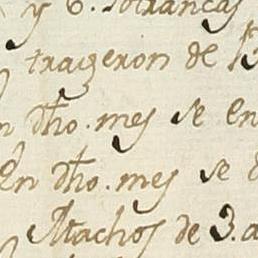 y 6. Potrancas
trageron de 13
n dho. mes se en
En dho. mes se e
Machos de 3. a